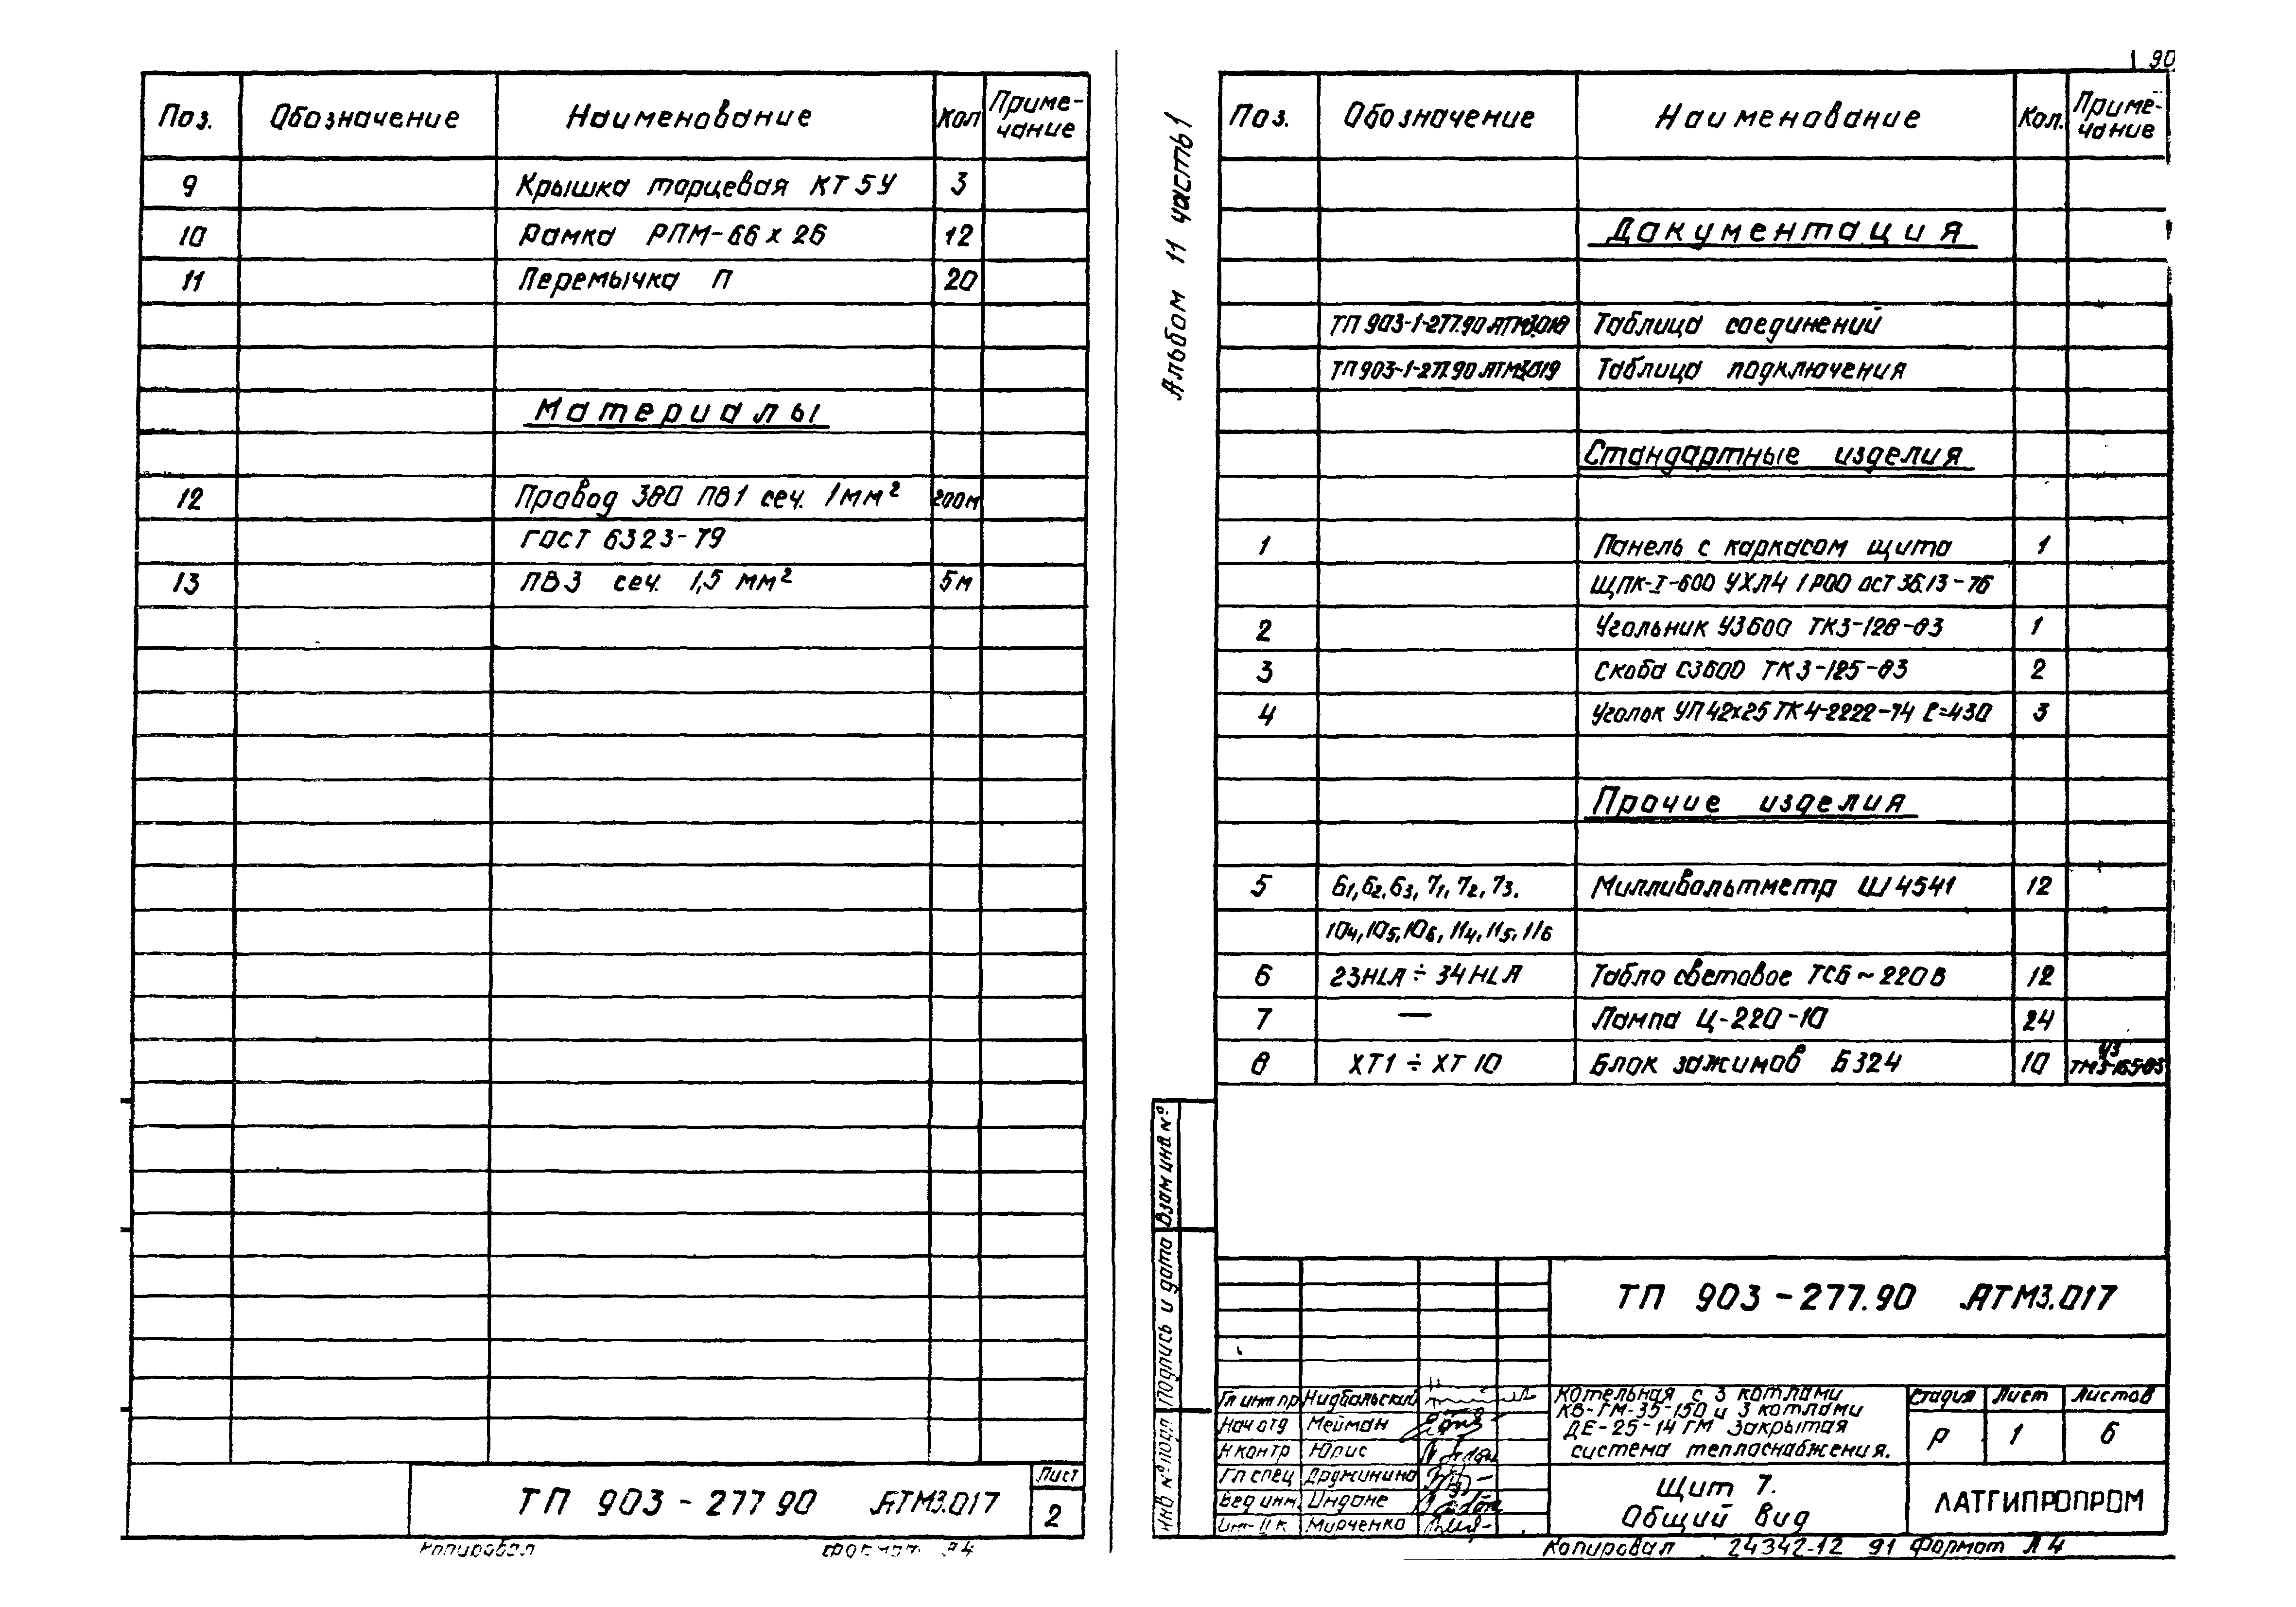 Поз. Обозначение Наименование Кол Приме-
чание
9 Крышка торцевая КТ 5У 3
10 Рамка РПМ-66х26 12
11 Перемычка П 20
Материалы
12 Провод 380 ПВ1 сеч. 1мм² 200м
ГОСТ 6323-79
13 ПВ3 сеч. 1,5 мм² 5м
ТП 903-277.90 АТМ3.017
Лист
2
Копировал Формат А4
90
Альбом 11 часть 1
Поз. Обозначение Наименование Кол. Приме-
чание
Документация
ТП 903-1-277.90 АТМ3.018 Таблица соединений
ТП 903-1-277.90 АТМ3.019 Таблица подключения
Стандартные изделия
1 Панель с каркасом щита 1
ЩПК-I-600 УХЛ4 IP00 ОСТ 36.13-76
2 Угольник УЗ600 ТК3-128-83 1
3 Скоба СЗ600 ТК3-125-83 2
4 Уголок УП 42х25 ТК4-2222-74 ℓ=430 3
Прочие изделия
5 6₁, 6₂, 6₃, 7₁, 7₂, 7₃. Милливольтметр Ш 4541 12
10₄, 10₅, 10₆, 11₄, 11₅, 11₆
6 23HLA ÷ 34HLA Табло световое ТСБ ~ 220В 12
7 — Лампа Ц-220-10 24
8 XT1 ÷ XT10 Блок зажимов Б324 10 УЗ
ТМ3-165-83
Взам инв №
Подпись и дата
Инв № подл
ТП 903-277.90 АТМ3.017
Гл инж пр Нидбальский
Нач отд Мейман
Н контр Юпис
Гл спец Дружинина
Вед инж. Индане
Инж II к Мирченко
Котельная с 3 котлами
КВ-ГМ-35-150 и 3 котлами
ДЕ-25-14 ГМ Закрытая
система теплоснабжения.
Стадия Лист Листов
Р 1 6
Щит 7.
Общий вид
ЛАТГИПРОПРОМ
Копировал 24342-12 91 Формат А4